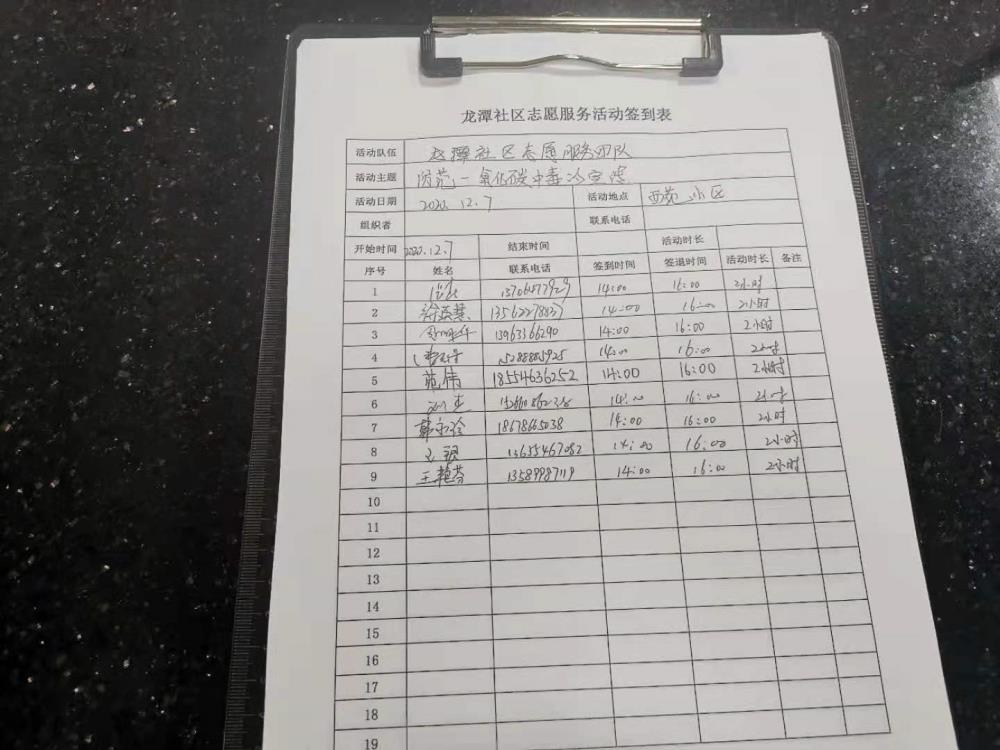 龙潭社区志愿服务活动签到表
活动队伍 龙潭社区志愿服务团队
活动主题 防范一氧化碳中毒
活动日期 2020.12.7 活动地点 西苑小区
组织者 联系电话
开始时间 2020.12.7 结束时间 活动时长
序号 姓名 联系电话 签到时间 签退时间 活动时长 备注
1 14:00 16:00 2小时
2 14:00 16:00 2小时
3 13963366290 14:00 16:00 2小时
4 15288885925 14:00 16:00 2小时
5 范伟 18554636252 14:00 16:00 2小时
6 14:00 16:00 2小时
7 18678665038 14:00 16:00 2小时
8 13655467082 14:00 16:00 2小时
9 王艳芬 13589987119 14:00 16:00 2小时
10
11
12
13
14
15
16
17
18
19